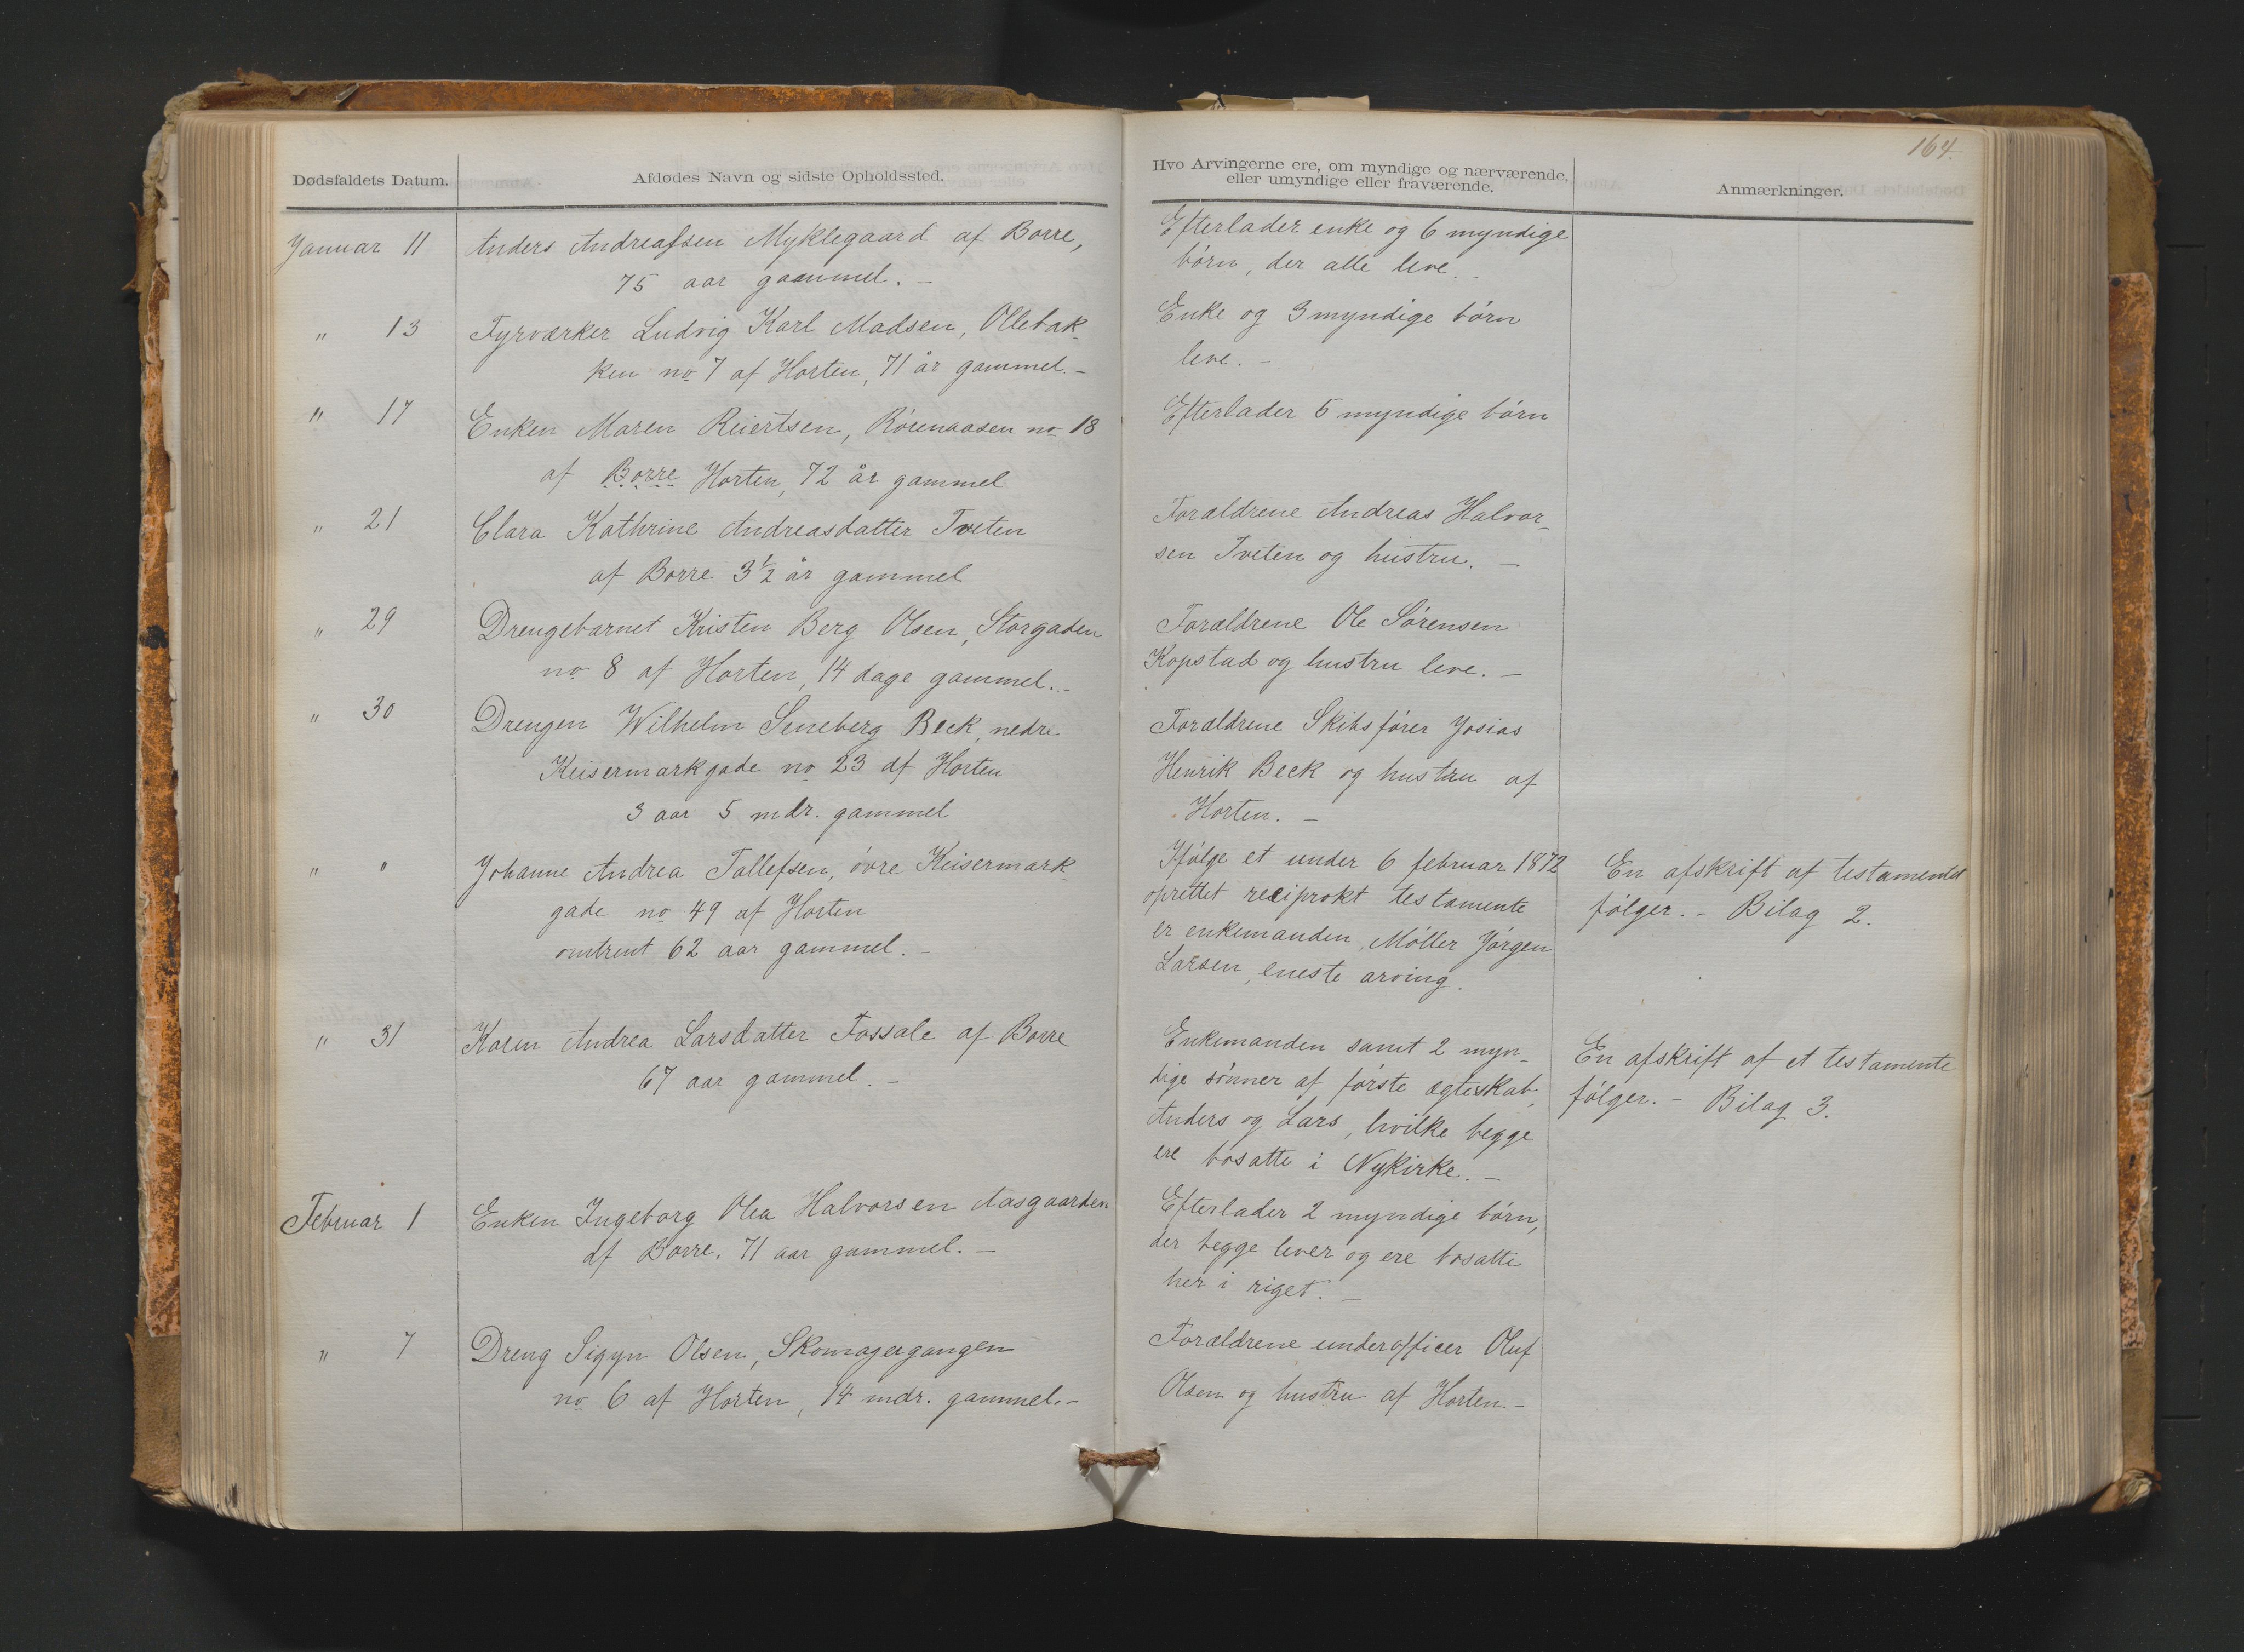 164.
Dødsfaldets Datum.
Afdødes Navn og sidste Opholdssted.
Hvo Arvingerne ere, om myndige og nærværende,
eller umyndige eller fraværende.
Anmærkninger.
Januar 11
Anders Andreassen Myklegaard af Borre,
75 aar gaammel. –
Efterlader enke og 6 myndige
børn, der alle leve. –
" 13
Fyrværker Ludvig Karl Madsen, Ollebak-
ken no 7 af Horten, 71 år gammel. –
Enke og 3 myndige børn
leve. –
" 17
Enken Maren Reiertsen, Rørenaasen no 18
af Borre Horten, 72 år gammel
Efterlader 5 myndige børn
" 21
Clara Kathrine Andreasdatter Tveten
af Borre 3½ år gammel
Forældrene Andreas Halvor-
sen Tveten og hustru. –
" 29
Drengebarnet Kristen Berg Olsen, Storgaden
no 8 af Horten, 14 dage gammel. –
Forældrene Ole Sørensen
Kopstad og hustru leve. –
" 30
Drengen Wilhelm Seneberg Beck, nedre
Keisermarkgade no 23 af Horten
3 aar 5 mdr. gammel
Forældrene Skibsfører Josias
Henrik Beck og hustru af
Horten. –
" "
Johanne Andrea Tallefsen, øvre Keisermark-
gade no 49 af Horten
omtrent 62 aar gammel. –
Ifølge et under 6 februar 1872
oprettet reciprokt testamente
er enkemanden, Møller Jørgen
Larsen, eneste arving.
En afskrift af testamentet
følger. – Bilag 2.
" 31
Karen Andrea Larsdatter Fossale af Borre
67 aar gammel. –
Enkemanden samt 2 myn-
dige sønner af første ægteskab,
Anders og Lars, hvilke begge
ere bosatte i Nykirke. –
En afskrift af et testamente
følger. – Bilag 3.
Februar 1
Enken Ingeborg Olea Halvorsen Aasgaarden
af Borre. 71 aar gammel. –
Efterlader 2 myndige børn,
der begge lever og ere bosatte
her i riget. –
" 7
Dreng Sigyn Olsen, Skomagergangen
no 6 af Horten, 14 mdr. gammel. –
Forældrene underofficer Oluf
Olsen og hustru af Horten. –